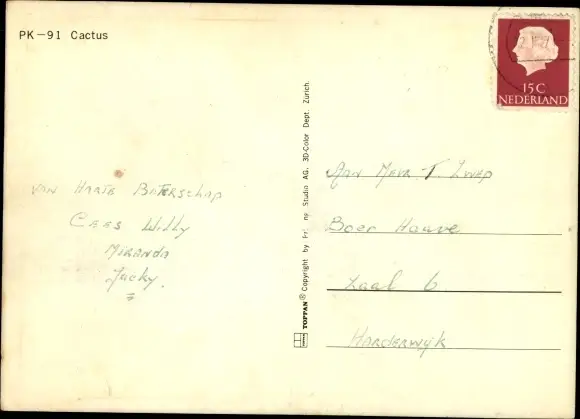 PK-91 Cactus
15 C
NEDERLAND
van Harte Beterschap
Cees Willy
Miranda
Jacky.
TOPPAN ® Copyright by Studio AG, 3D-Color Dept. Zürich.
Aan Mevr T. Zwep
Boer Hauve
Zaal 6
Harderwyk